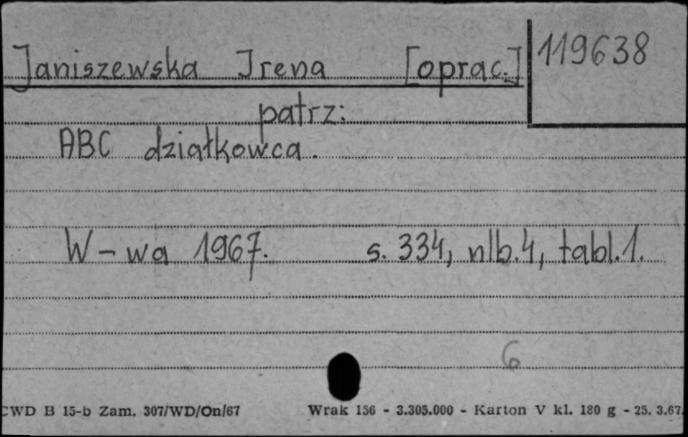 Janiszewska Irena [oprac.] 119638
patrz:
ABC działkowca.
W-wa 1967. s. 334, nlb.4, tabl.1.
6
CWD B 15-b Zam. 307/WD/On/67 Wrak 156 - 3.305.000 - Karton V kl. 180 g - 25. 3.67.